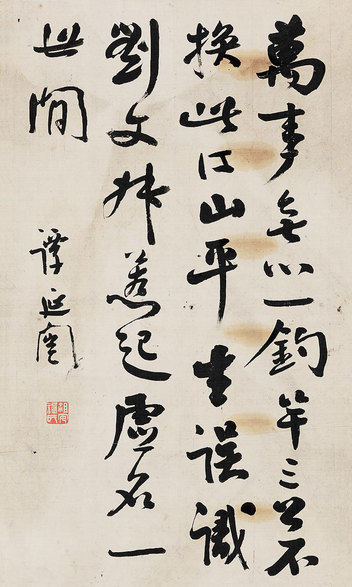 萬事無心一釣竿三公不
換此江山平生誤識
劉文叔惹起虛名一
世間
譚延闓